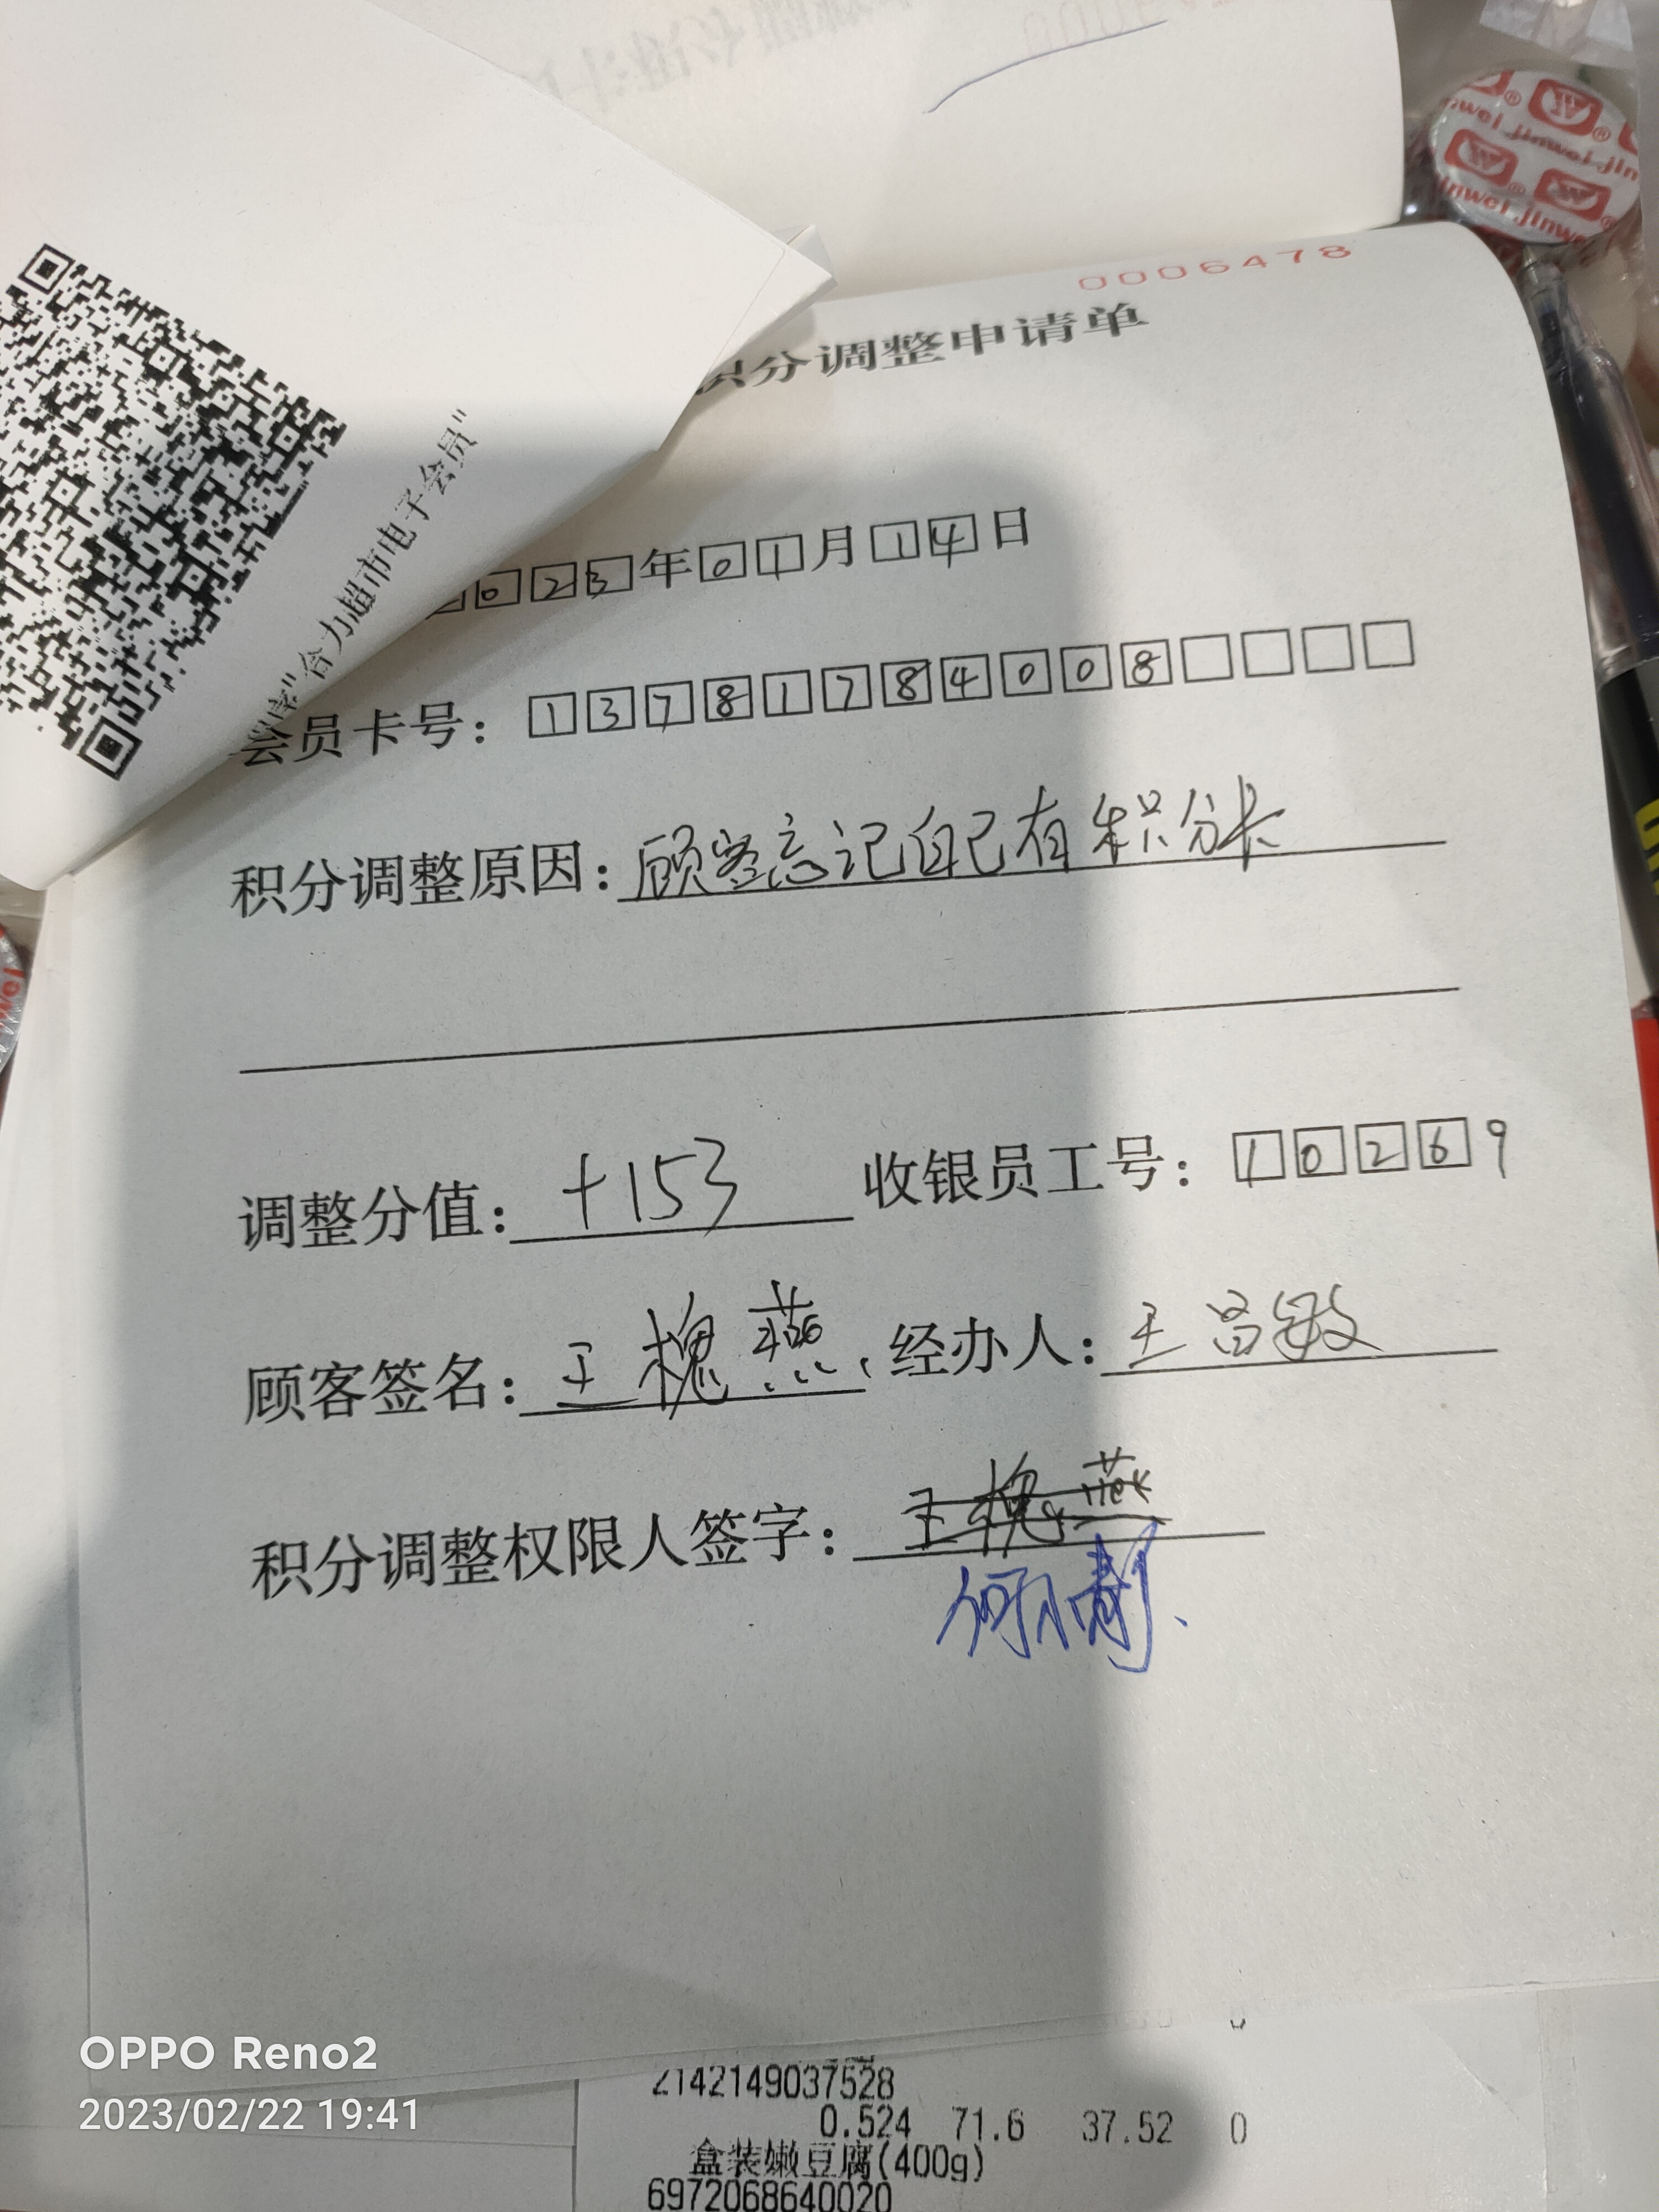 0006478
积分调整申请单
"合力超市电子会员"
2023年01月14日
会员卡号：13781784008
积分调整原因：顾客忘记自己有积分卡
调整分值：+153 收银员工号：10269
顾客签名：王槐燕 经办人：王吕敏
积分调整权限人签字：王槐燕
jinwei
OPPO Reno2
2023/02/22 19:41
2142149037528
0.524 71.6 37.52 0
盒装嫩豆腐(400g)
6972068640020